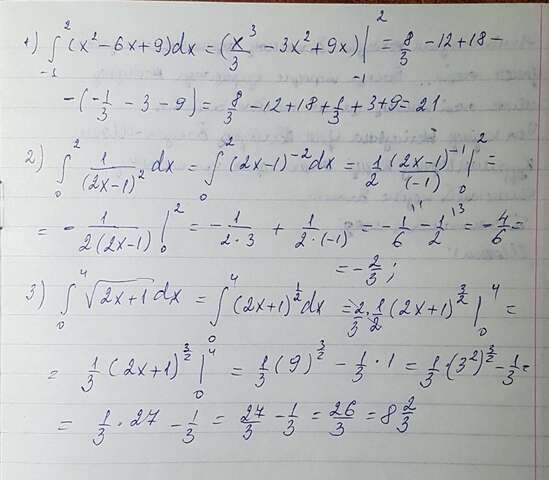 1) ∫₋₁² (x² − 6x + 9)dx = (x³/3 − 3x² + 9x)|₋₁² = 8/3 − 12 + 18 −
− (−1/3 − 3 − 9) = 8/3 − 12 + 18 + 1/3 + 3 + 9 = 21
2) ∫₀² 1/(2x−1)² dx = ∫₀² (2x−1)⁻² dx = 1/2 (2x−1)⁻¹/(−1) |₀² =
= − 1/(2(2x−1)) |₀² = − 1/(2·3) + 1/(2·(−1)) = − 1/6 − 1/2 = − 4/6 =
= − 2/3 ;
3) ∫₀⁴ √(2x+1) dx = ∫₀⁴ (2x+1)^(1/2) dx = 2/3 · 1/2 (2x+1)^(3/2) |₀⁴ =
= 1/3 (2x+1)^(3/2) |₀⁴ = 1/3 (9)^(3/2) − 1/3 · 1 = 1/3 · (3²)^(3/2) − 1/3 =
= 1/3 · 27 − 1/3 = 27/3 − 1/3 = 26/3 = 8 2/3